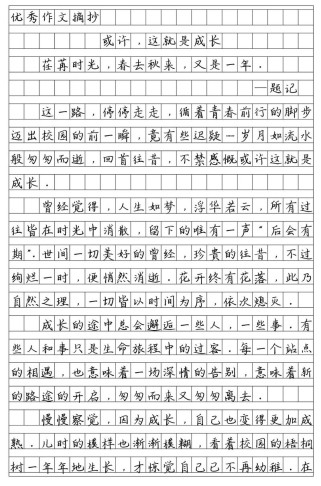 优秀作文摘抄
或许，这就是成长
荏苒时光，春去秋来，又是一年．
—题记
这一路，停停走走，循着青春前行的脚步
迈出校园的前一瞬，竟有些迟疑—岁月如流水
般匆匆而逝，回首往昔，不禁感慨或许这就是
成长．
曾经觉得，人生如梦，浮华若云，所有过
往皆在时光中消散，留下的唯有一声"后会有
期"．世间一切美好的曾经，珍贵的往昔，不过
绚烂一时，便悄然消逝．花开终有花落，此乃
自然之理，一切皆以时间为序，依次熄灭．
成长的途中总会邂逅一些人，一些事．有
些人和事只是生命旅程中的过客．每一个站点
的相遇，也意味着一场深情的告别，意味着新
的路途的开启，匆匆而来又匆匆离去．
慢慢察觉，因为成长，自己也变得更加成
熟．儿时的模样也渐渐模糊，看着校园的梧桐
树一年年地生长，才惊觉自己已不再幼稚．在